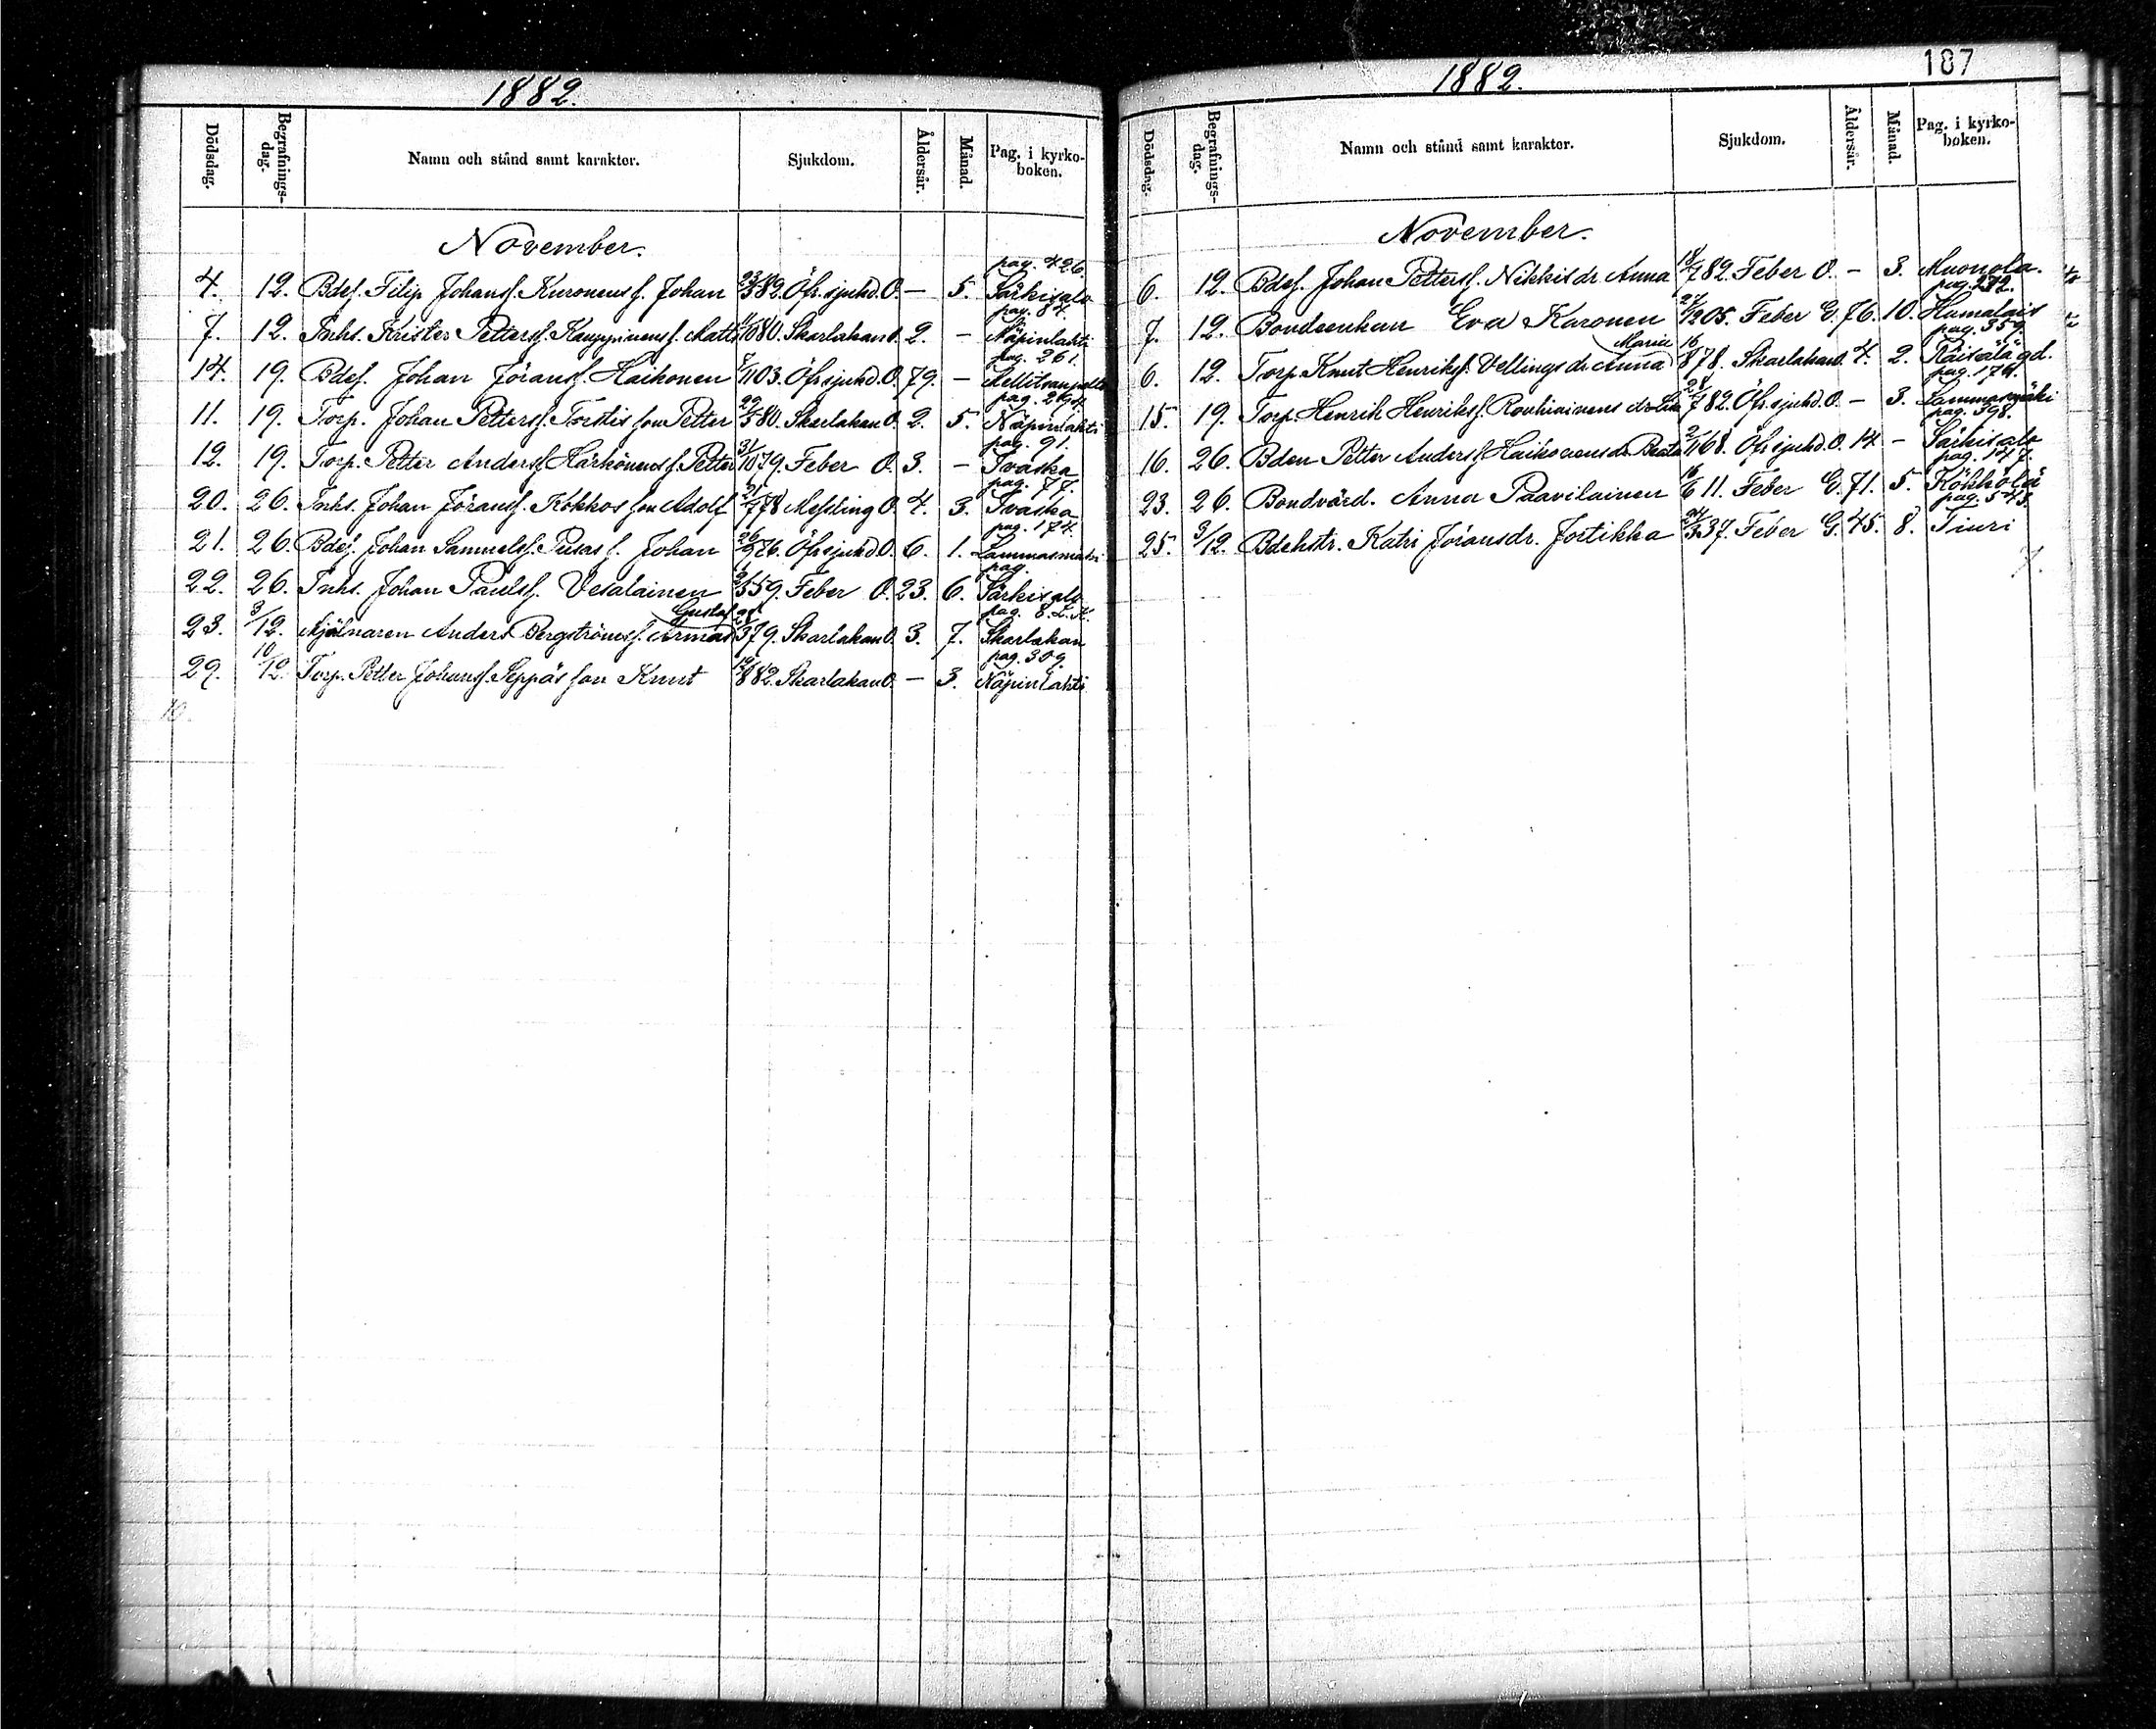 1882.
Dödsdag. Begrafnings-dag. Namn och stånd samt karakter. Sjukdom. Åldersår. Månad. Pag. i kyrko-boken.
November.
pag. 426.
4. 12. Bdes. Filip Johanss. Kuronens s. Johan 23/5 82. Öfr. sjukd. O. — 5. Särkisalo
pag. 84.
7. 12. Inhs. Krister Petterss. Kauppinens s. Matts /10 80. Skarlakan O. 2. — Näpinlahti
pag. 261.
14. 19. Bdes. Johan Jöranss. Haikonen /11 03. Öfr. sjukd. O. 79. —
11. 19. Torp. Johan Petterss. Torstis son Petter 29/5 80. Skarlakan O. 2. 5. Näpinlahti
pag. 91.
12. 19. Torp. Petter Anderss. Härkönens s. Petter 31/10 79. Feber O. 3. — Ivaska
pag. 77.
20. 26. Inhs. Johan Jöranss. Kokkos son Adolf 21/7 78 Messling O 4. 3. Ivaska
pag. 174.
21. 26. Bdes. Johan Samuelss. Pusas s. Johan 26/9 76. Öfr. sjukd. O. 6. 1. Lammasmäki
pag.
22. 26. Inhs. Johan Paulss. Vesalainen /5 59. Feber O. 23. 6. Särkisalo
Gustaf pag. 8. L. K.
23. 3/12. Mjölnaren Anders Bergströms s. Armas /3 79. Skarlakan O. 3. 7. Skarlakan
pag. 309.
29. 10/12. Torp. Petter Johanss. Seppäs son Knut 19/8 82. Skarlakan O. — 3. Näpinlahti
10.
187
1882.
Dödsdag. Begrafnings-dag. Namn och stånd samt karakter. Sjukdom. Åldersår. Månad. Pag. i kyrko-boken.
November.
6. 12. Bdes. Johan Petterss. Nikkis dr. Anna 18/7 82. Feber O. — 3. Muonola.
pag. 272.
7. 12. Bondeenkan Eva Karonen 27/12 05. Feber G. 76. 10. Humalais
Maria pag. 359.
6. 12. Torp. Knut Henrikss. Vellings dr. Anna 16/8 78. Skarlakan O. 4. 2. Räisälä gd.
pag. 174.
15. 19. Torp. Henrik Henrikss. Rouhiainens dr. 28/7 82. Öfr. sjukd. O. — 3. Lammasmäki
pag. 398.
16. 26. Bden Petter Anderss. Haikonens dr. Beata 2/11 68. Öfr. sjukd. O. 14 — Särkisalo
pag. 147.
23. 26. Bondvärd. Anna Paavilainen 16/6 11. Feber G. 71. 5. Kökkölä
pag. 543.
25. 3/12. Bdehstr. Katri Jöransdr. Jortikka 24/3 37. Feber G. 45. 8. Tiuri
7.